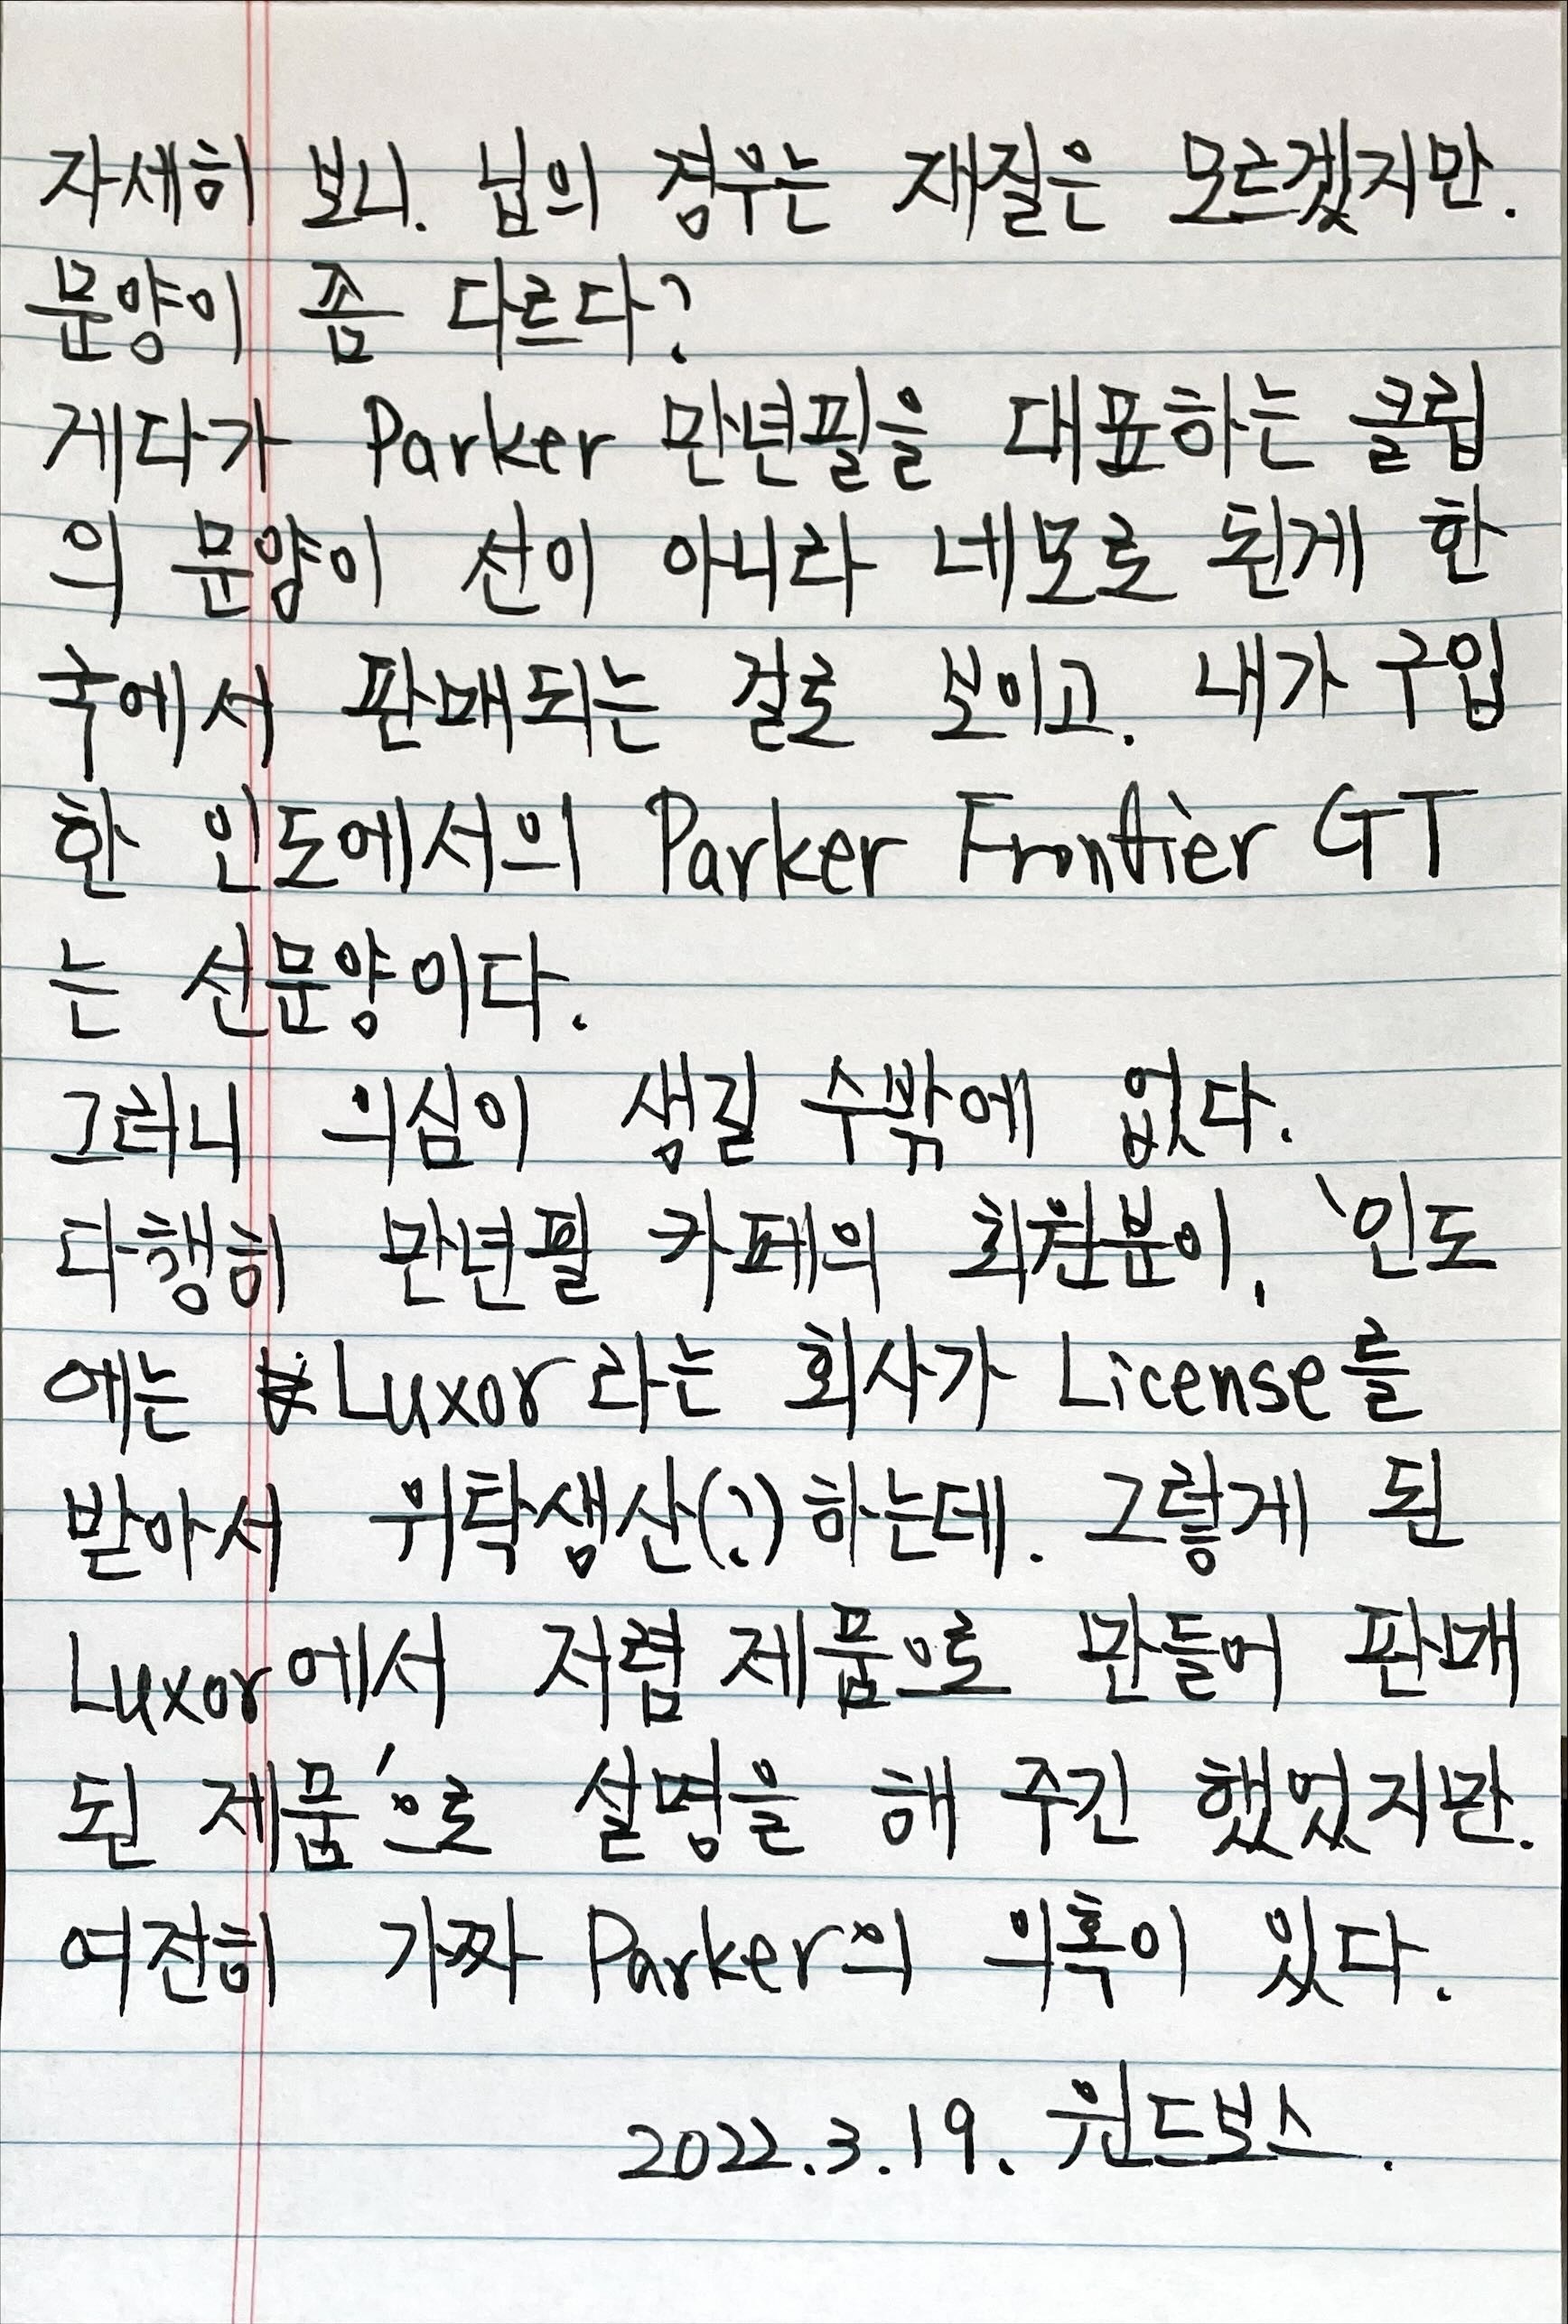 자세히 보니. 닙의 경우는 재질은 모르겠지만.
문양이 좀 다르다?
게다가 Parker 만년필을 대표하는 클립
의 문양이 선이 아니라 네모로 된게 한
국에서 판매되는 걸로 보이고. 내가 구입
한 인도에서의 Parker Frontier GT
는 선문양이다.
그러니 의심이 생길 수밖에 없다.
다행히 만년필 카페의 회원분이, '인도
에는 Luxor라는 회사가 License를
받아서 위탁생산(?)하는데. 그렇게 된
Luxor에서 저렴 제품으로 만들어 판매
된 제품'으로 설명을 해 주긴 했었지만.
여전히 가짜 Parker의 의혹이 있다.
2022.3.19. 윈드보스.